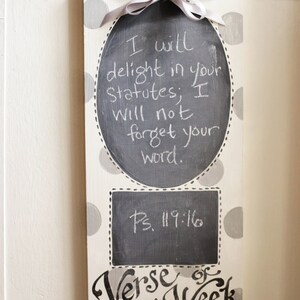 I will
delight in your
statutes; I
will not
forget your
word.
Ps. 119:16
Verse of
Week